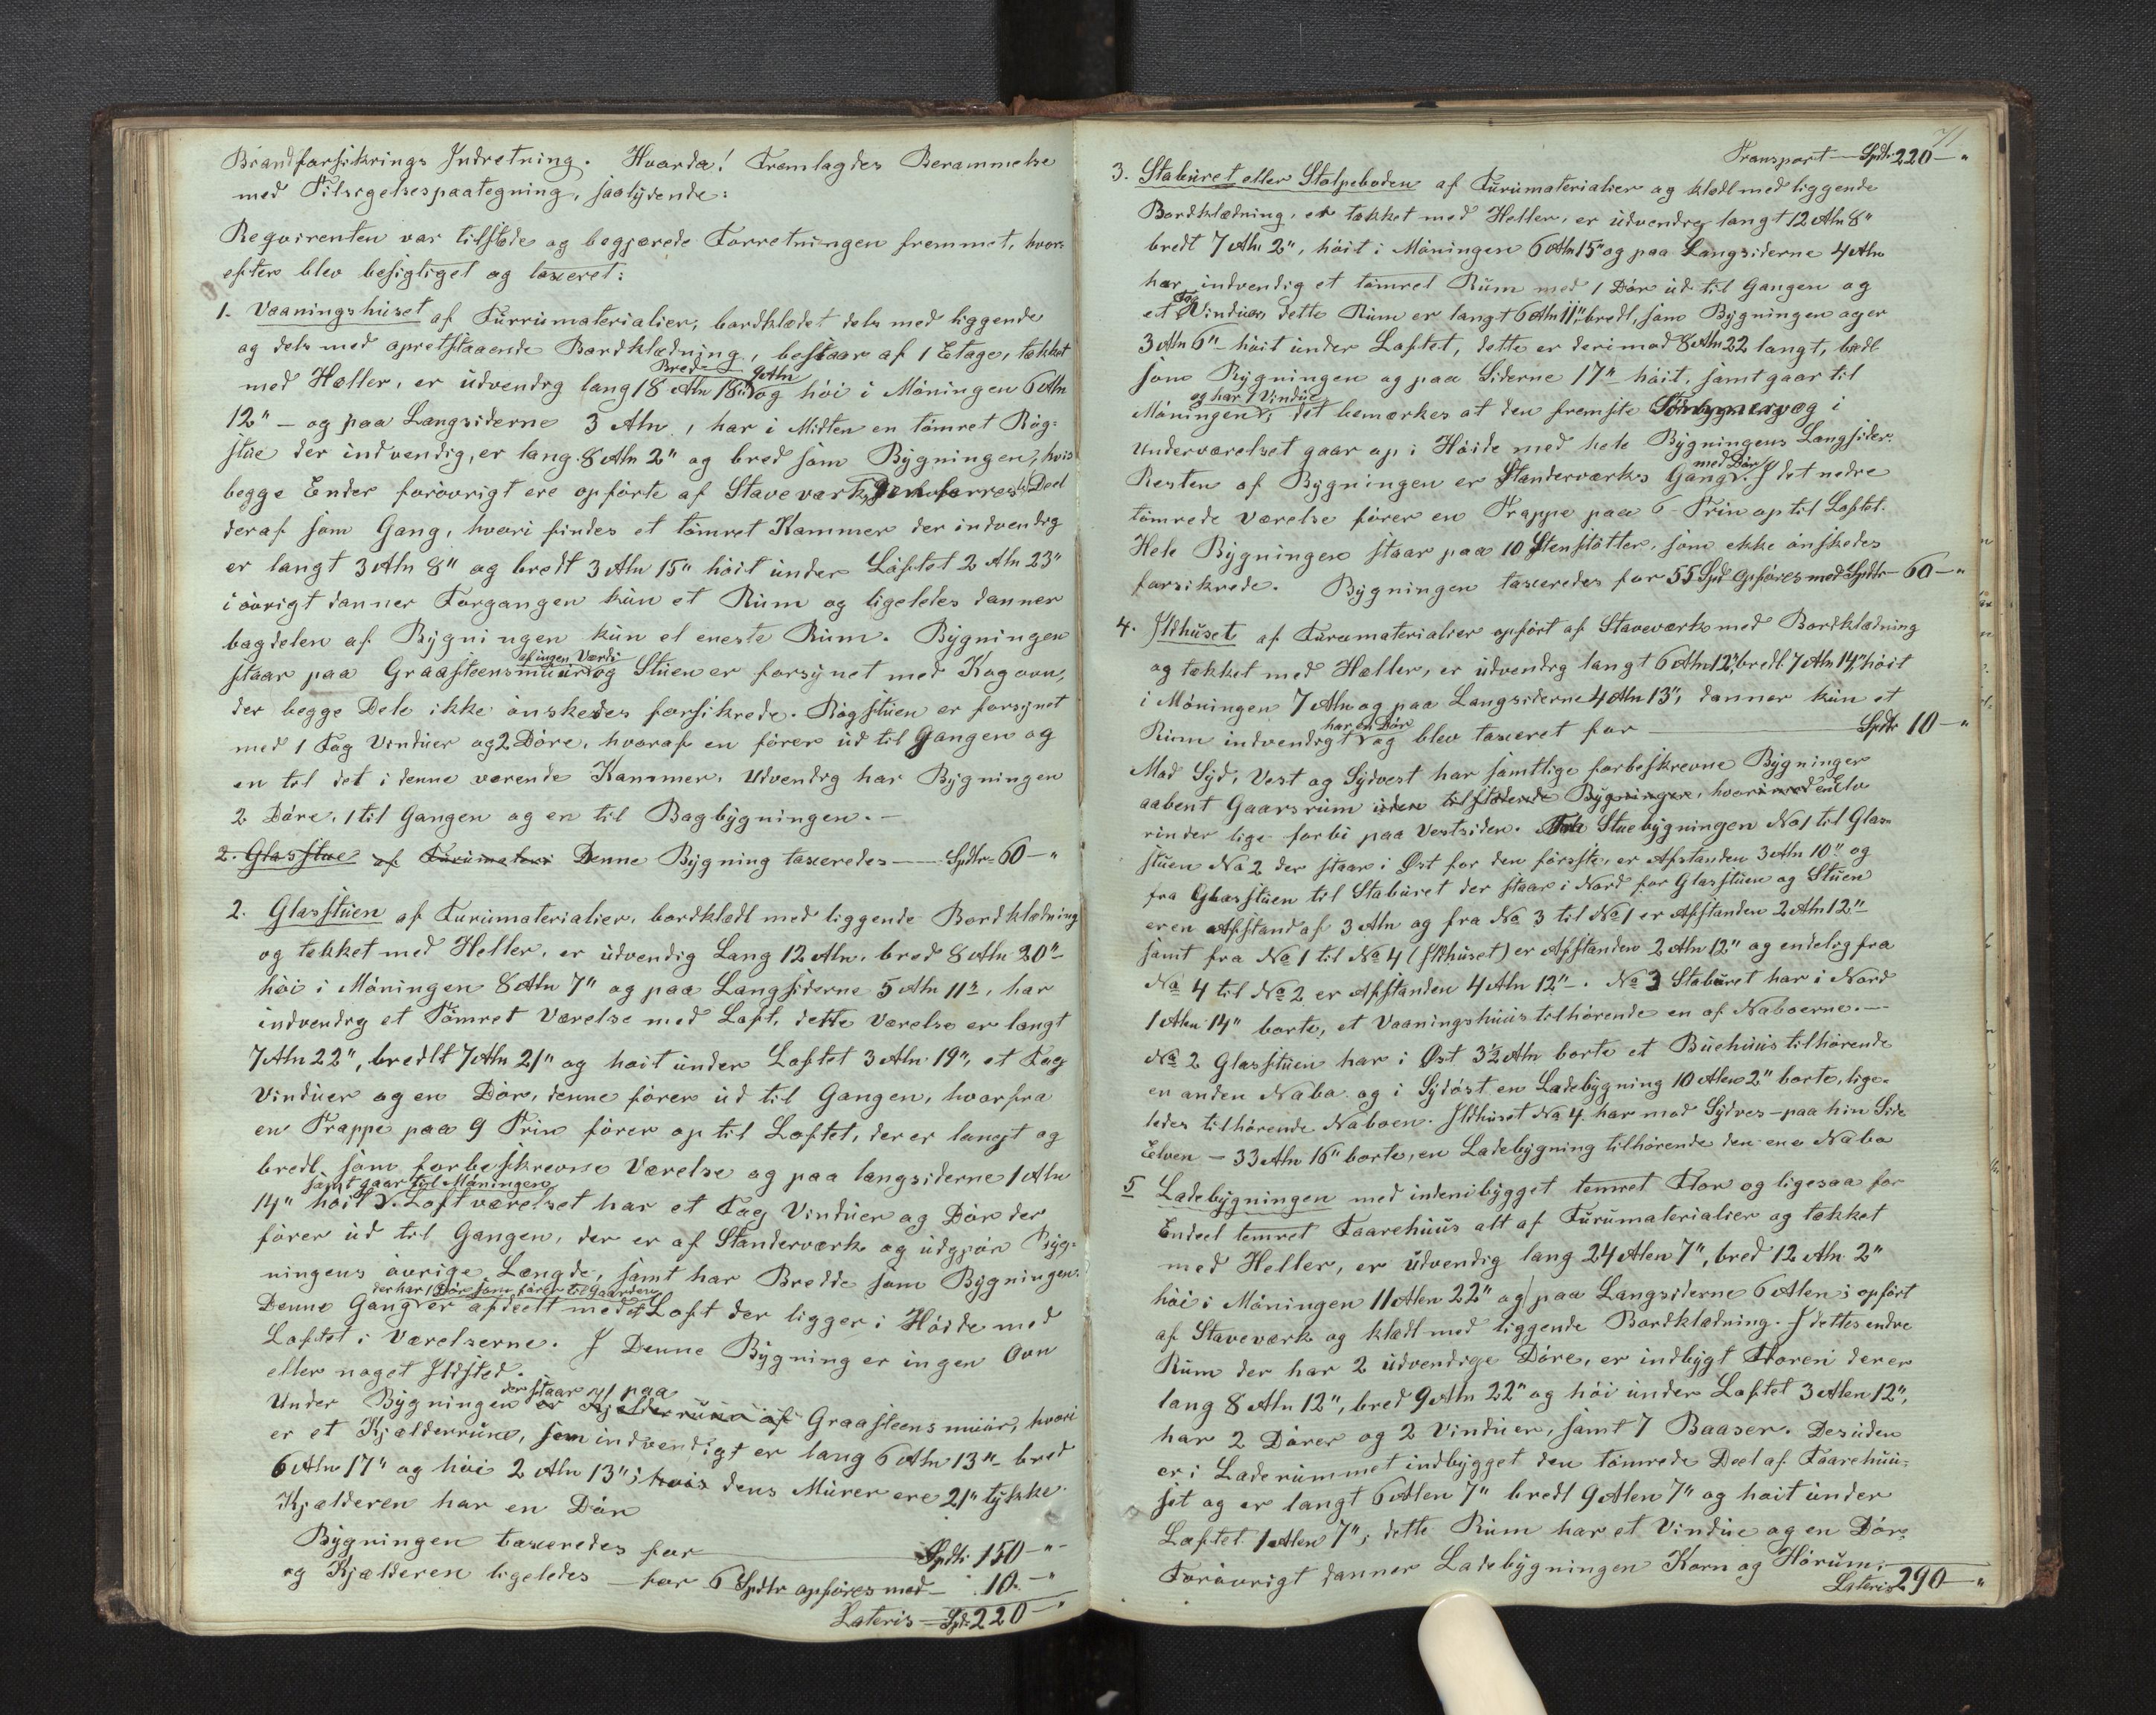 Brandforsikrings Indretning. Hvorda! Fremlagdes Berammelse
med Tilsigelsespaategning, saalydende:
Reqvirenten var tilstæde og begjærede Forretningen fremmet, hvor-
efter blev besigtiget og taxeret:
1. Vaaningshuset af Furrumaterialier, bordklædet dels med liggende
og dels med opretstaaende Bordklædning, bestaar af 1 Etage, tækket
med Hæller, er udvendig lang 18 Aln 18" Bred 9 Aln og høi i Møningen 6 Aln
12" – og paa Langsiderne 3 Aln, har i Midten en tømret Røg-
stue der indvendig, er lang 8 Aln 2" og bred som Bygningen, hvis
begge Ender forøvrigt ere opførte af Stavevark, Deel
deraf som Gang, hvori findes et tømret Kammer der indvendig
er langt 3 Aln 8" og bredt 3 Aln 15" høit under Loftet 2 Aln 23"
iøvrigt danner Forgangen kun et Rum og ligeledes danner
bagdelen af Bygningen kun et eneste Rum. Bygningen
staar paa Graasteensmuur af ingen Værdi og Stuen er forsynet med Kogovn,
der begge Dele ikke ønskedes forsikrede. Røgstuen er forsynet
med 1 Fag Vinduer og 2 Døre, hvoraf en fører ud til Gangen og
en til det i denne værende Kammer. Udvendig har Bygningen
2 Døre, 1 til Gangen og en til Bagbygningen. –
2. Glasstue af Furumateri Denne Bygning taxeredes — Spdlr 60 – "
2. Glasstuen af Furumaterialier, bordklædt med liggende Bordklædning
og tækket med Heller, er udvendig Lang 12 Aln, bred 8 Aln 20"
høi i Møningen 8 Aln 7" og paa Langsiderne 5 Aln 11", har
indvendig et Tømret Værelse med Loft, dette Værelse er langt
7 Aln 22", bredt 7 Aln 21" og høit under Loftet 3 Aln 19", et Fag
Vinduer og en Dør, denne fører ud til Gangen, hvorfra
en Trappe paa 9 Trin fører op til Loftet, der er langt og
bredt som forbeskrevne Værelse og paa langsiderne 1 Aln
14" høit samt gaar til Møningen. Loftværelset har et Fag Vinduer og Dør der
fører ud til Gangen, der er af Standerværk og udgjør Byg-
ningens øvrige Længde, samt har Bredde som Bygningen.
Denne Gang der har 1 Dør som fører til Gaarden er afdeelt med et Loft der ligger i Høide med
Loftet i Værelserne. I Denne Bygning er ingen Ovn
eller noget Ildsted.
Under Bygningen der staar paa er Kjælderrum af Graasteensmuur, hvori
er et Kjælderrum, som indvendigt er lang 6 Aln 13" bred
6 Aln 17" og høi 2 Aln 13"; hvis dens Murer ere 21" tykke.
Kjælderen har en Dør
Bygningen taxeredes for — Spdlr 150 – "
og Kjælderen ligeledes – for 6 Spdlr opføres med – 10 – "
Lateris – Spd 220 – "
71
Transport — Spdlr 220 – "
3. Staburet eller Stolpeboden af Furumaterialier og klædt med liggende
Bordklædning, er tækket med Heller, er udvendig langt 12 Aln 8"
bredt 7 Aln 2", høit i Møningen 6 Aln 15" og paa Langsiderne 4 Aln
har indvendig et tømret Rum med 1 Dør ud til Gangen og
et Fag Vinduer, dette Rum er langt 6 Aln 11", bredt, som Bygningen og er
3 Aln 6" høit under Loftet, dette er derimod 8 Aln 22 langt, bredt
som Bygningen og paa Siderne 17" høit, samt gaar til
Møningen og har 1 Vindue; det bemærkes at den fremste Tømmervæg i
Underværelset gaar op i Høide med hele Bygningens Langsider.
Resten af Bygningen er Standerværks Gang med Dør. I det nedre
tømrede Værelse fører en Trappe paa 6 Trin op til Loftet.
Hele Bygningen staar paa 10 Stenstøtter, som ikke ønskedes
forsikrede. Bygningen taxeredes for 55 Spd Opføres med Spdlr – 60 – "
4. Ildhuset af Furumaterialier opført af Staveværk med Bordklædning
og tækket med Hæller, er udvendig langt 6 Aln 12", bredt 7 Aln 14", høit
i Møningen 7 Aln og paa Langsiderne 4 Aln 13", danner kun et
Rum indvendigt har en Dør og blev taxeret for — Spdlr 10 – "
Mod Syd, Vest og Sydvest har samtlige forbeskrevne Bygninger
aabent Gaarsrum uden tilstødende Bygninger, hvorimod en Elv
rinder lige forbi paa Vestsiden. Fra Stuebygningen No 1 til Glas-
stuen No 2 der staar i Øst for den første, er Afstanden 3 Aln 10" og
fra Glasstuen til Staburet der staar i Nord for Glasstuen og Stuen
er en Afstand af 3 Aln og fra No 3 til No 1 er Afstanden 2 Aln 12"
samt fra No 1 til No 4 (Ildhuset) er Afstanden 2 Aln 12" og endelig fra
No 4 til No 2 er Afstanden 4 Aln 12". No 3 Staburet har i Nord
1 Aln 14" borte, et Vaaningshuus tilhørende en af Naboerne. –
No 2 Glasstuen har i Øst 3½ Aln borte et Buehuus tilhørende
en anden Nabo og i Sydøst en Ladebygning 10 Alen 2" borte, lige-
ledes tilhørende Naboen. Ildhuset No 4 har mod Sydves – paa hin Side
Elven – 33 Aln 16" borte, en Ladebygning tilhørende den ene Nabo
5 Ladebygningen med indenibygget temret Flor og ligesaa for
Endeel temret Faarehuus alt af Furumaterialier og tækket
med Heller, er udvendig lang 24 Alen 7", bred 12 Aln 2"
høi i Møningen 11 Alen 22" og paa Langsiderne 6 Alen; opført
af Staveværk og klædt med liggende Bordklædning. I dettes endre
Rum der har 2 udvendige Døre, er indbygt Floren der er
lang 8 Aln 12", bred 9 Aln 22" og høi under Loftet 3 Alen 12",
har 2 Dører og 2 Vinduer, samt 7 Baaser. Desuden
er i Laderummet indbygget den tømrede Deel af Faarehuu-
set og er langt 6 Alen 7" bredt 9 Alen 7" og høit under
Loftet 1 Alen 7"; dette Rum har et Vindue og en Dør.
Forøvrigt danner Ladebygningen Korn og Hørum.
Lateris 290 – "